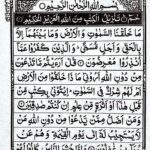 بسم الله الرحمن الرحيم
حم تنزيل الكتب من الله العزيز الحكيم
ما خلقنا السموت والارض وما بينهما الا
بالحق واجل مسمى والذين كفروا عما
انذروا معرضون قل ارءيتم ما تدعون
من دون الله اروني ماذا خلقوا من الارض
ام لهم شرك في السموت ايتوني بكتب من
قبل هذا او اثرة من علم ان كنتم صدقين
ومن اضل ممن يدعوا من دون الله من
لا يستجيب له الى يوم القيمة وهم عن